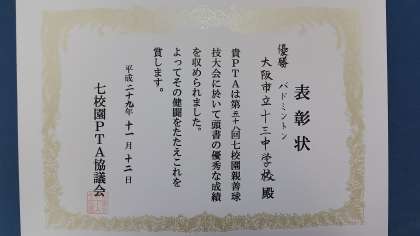 表彰状
バドミントン
優勝
大阪市立十三中学校殿
貴PTAは第五十八回七校園親善球
技大会に於いて頭書の優秀な成績
を収められました。
よってその健闘をたたえこれを
賞します。
平成二十九年十一月十二日
七校園PTA協議会